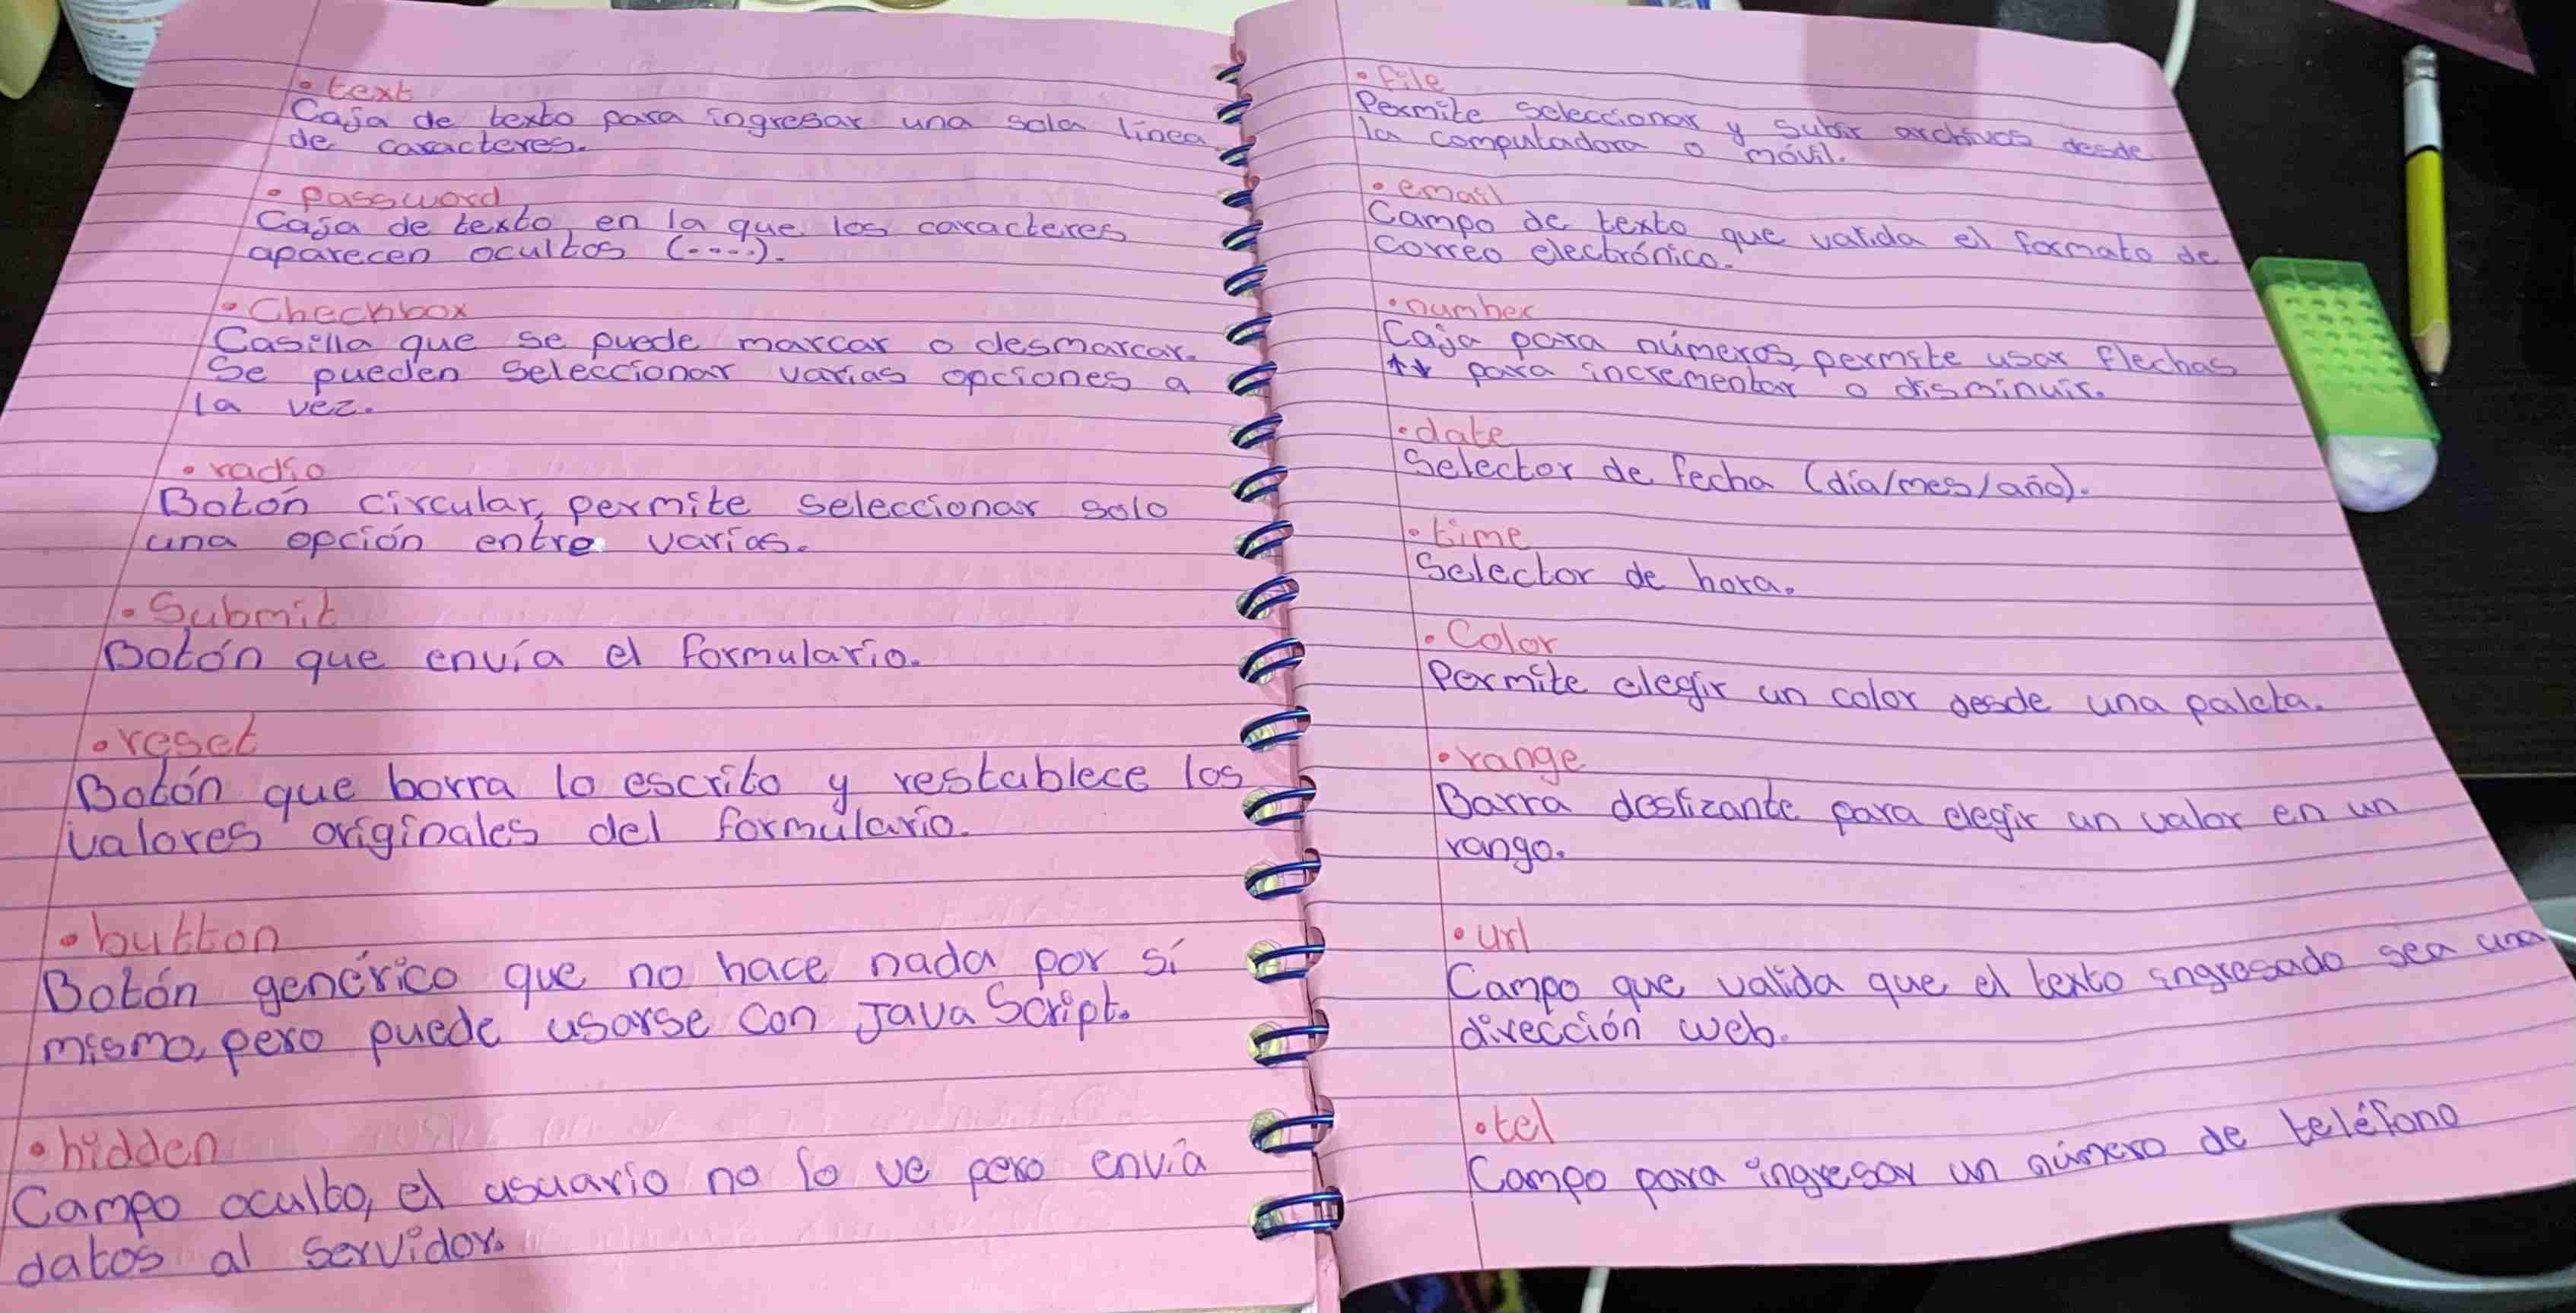 • text
Caja de texto para ingresar una sola línea
de caracteres.
• password
Caja de texto en la que los caracteres
aparecen ocultos (....).
• Checkbox
Casilla que se puede marcar o desmarcar.
Se pueden seleccionar varias opciones a
la vez.
• radio
Botón circular, permite seleccionar solo
una opción entre varias.
• Submit
Botón que envía el formulario.
• reset
Botón que borra lo escrito y restablece los
valores originales del formulario.
• button
Botón genérico que no hace nada por sí
mismo, pero puede usarse con JavaScript.
• hidden
Campo oculto, el usuario no lo ve pero envía
datos al servidor.
• file
Permite seleccionar y subir archivos desde
la computadora o móvil.
• email
Campo de texto que valida el formato de
correo electrónico.
• number
Caja para números, permite usar flechas
↑↓ para incrementar o disminuir.
• date
Selector de fecha (día/mes/año).
• time
Selector de hora.
• Color
Permite elegir un color desde una paleta.
• range
Barra deslizante para elegir un valor en un
rango.
• url
Campo que valida que el texto ingresado sea una
dirección web.
• tel
Campo para ingresar un número de teléfono